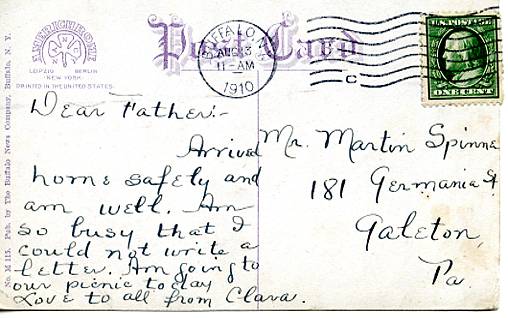 AMERICHROME
LEIPZIG BERLIN
NEW YORK
PRINTED IN THE UNITED STATES
Post Card
BUFFALO, N.Y.
AUG 13
11-AM
1910
C
U.S. POSTAGE
ONE CENT
No. M 115. Pub. by The Buffalo News Company, Buffalo, N. Y.
Dear Father:-
Arrived
home safely and
am well. Am
so busy that I
could not write a
letter. Am going to
our picnic today
Love to all from Clara.
Mr. Martin Spinne
181 Germania St
Galeton,
Pa.